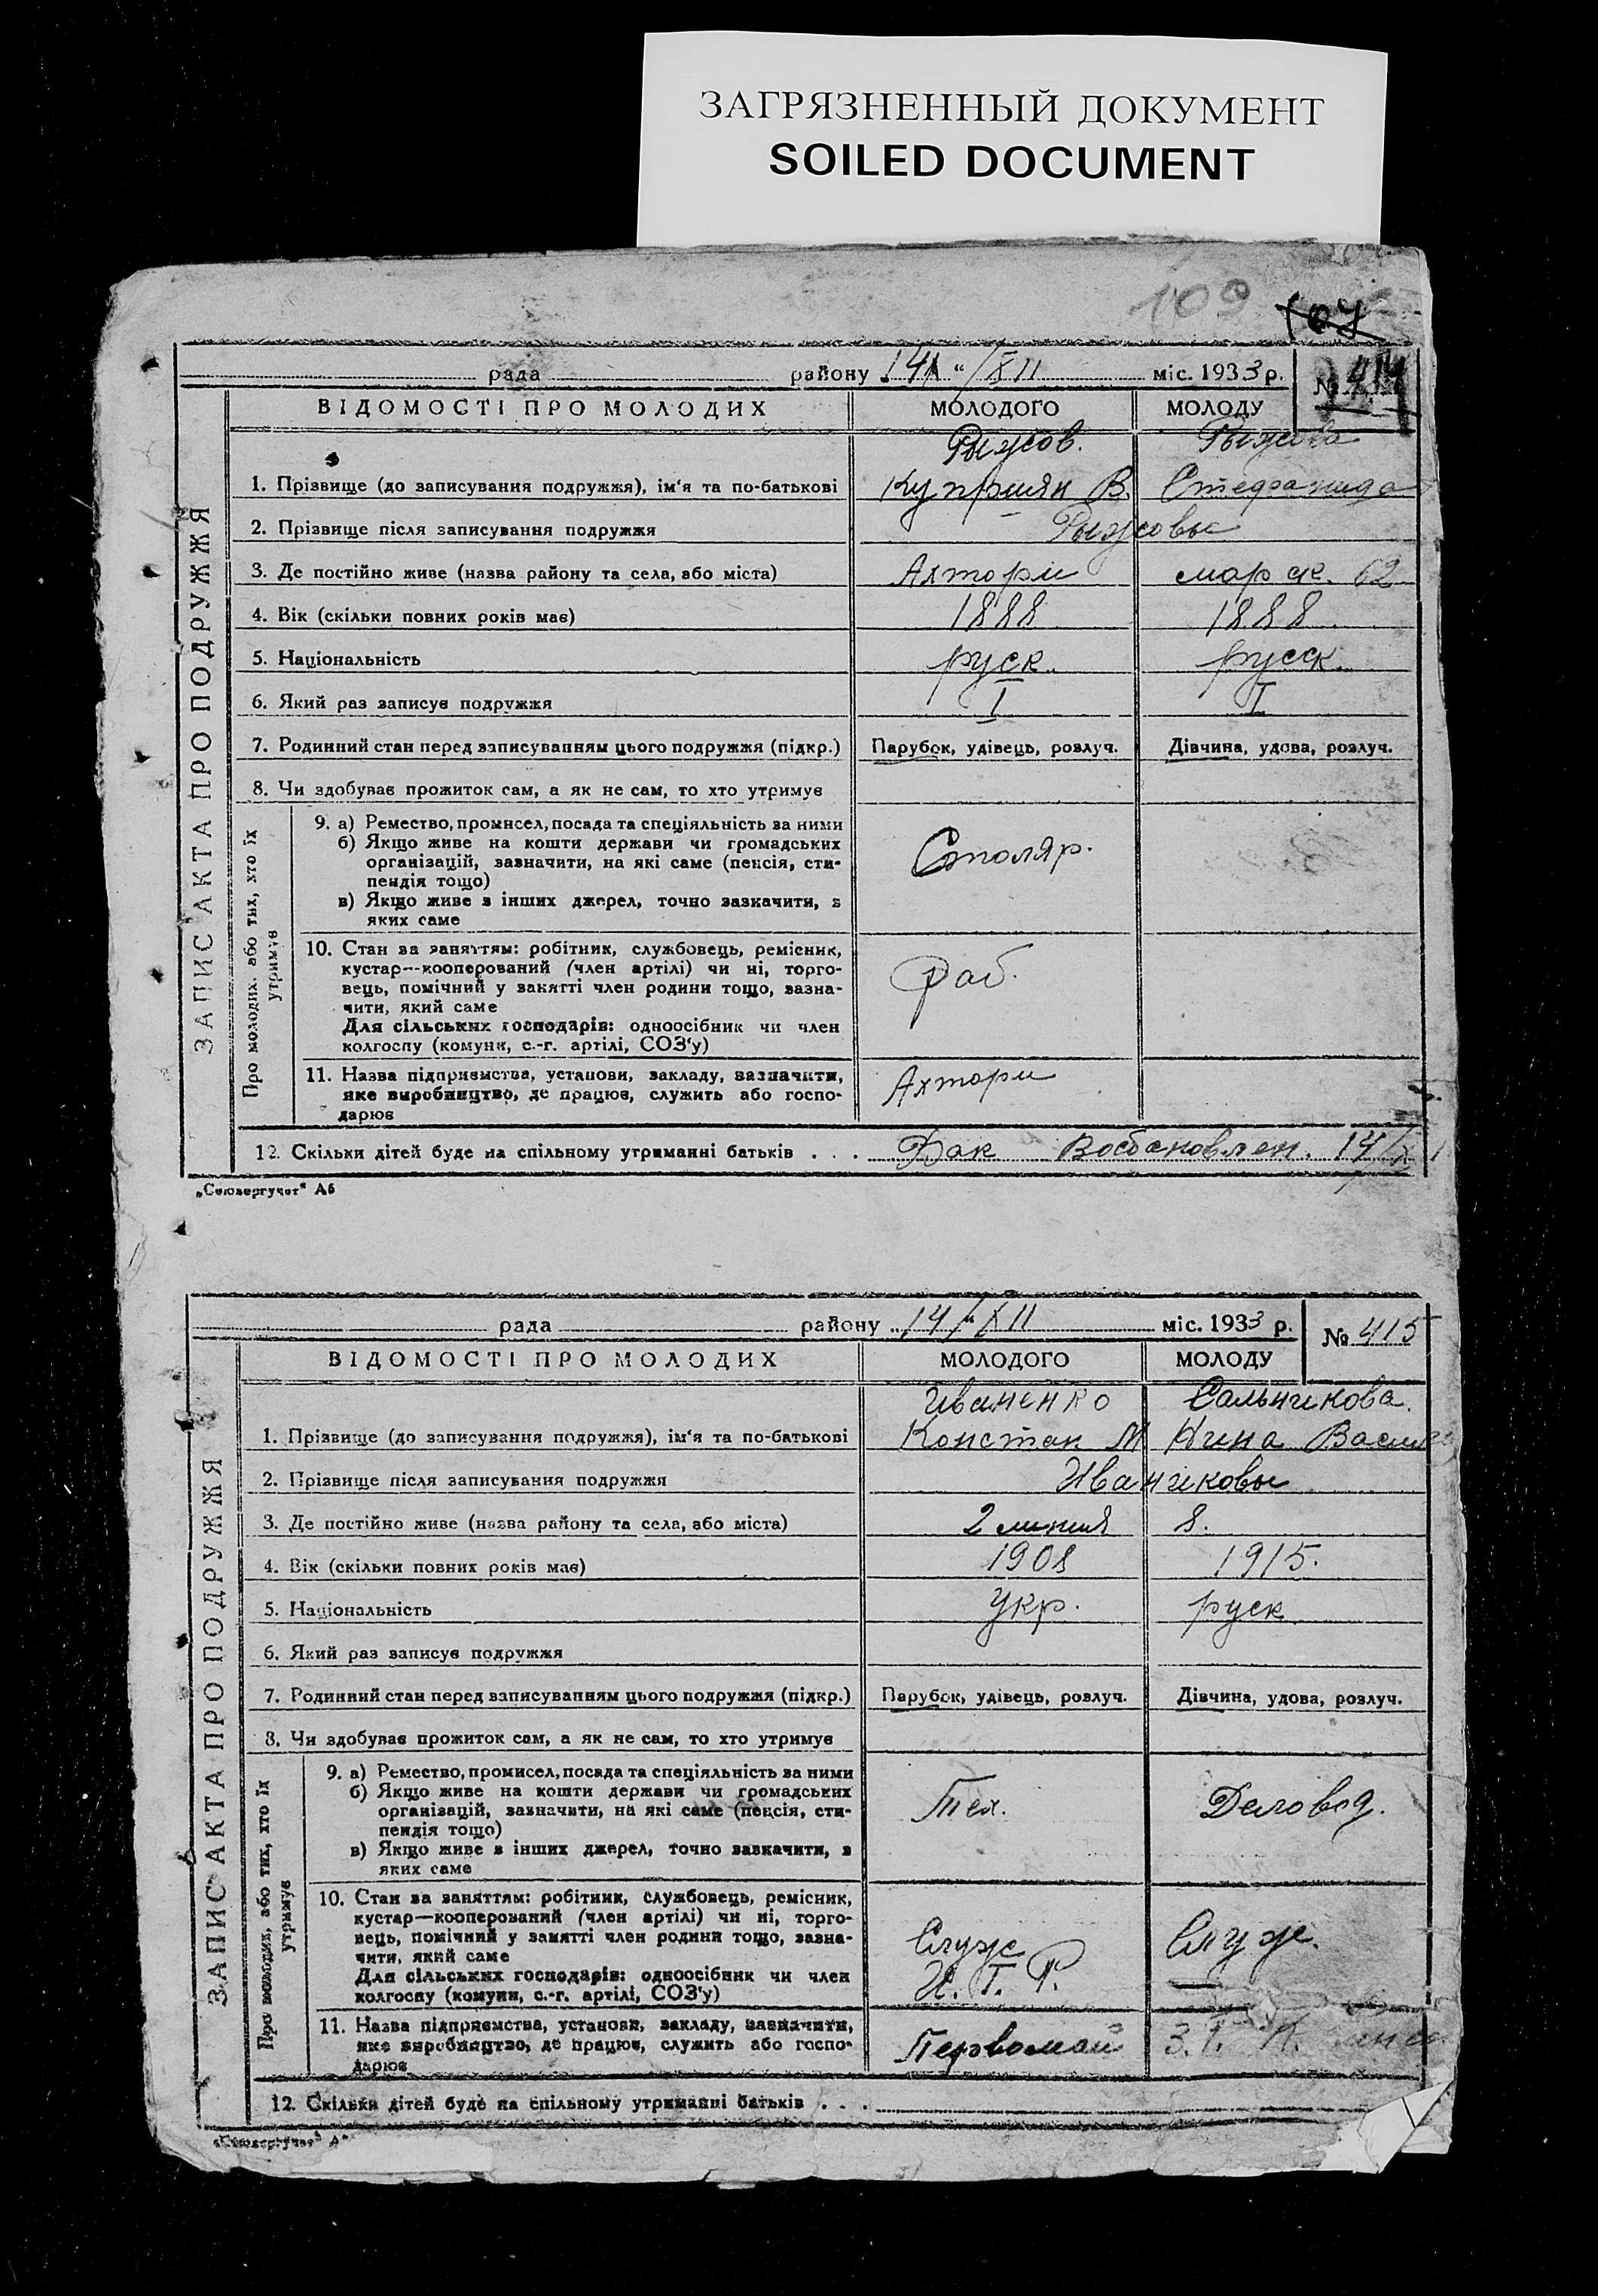 ЗАГРЯЗНЕННЫЙ ДОКУМЕНТ
SOILED DOCUMENT
109
107
рада району 14 "/XII міс. 1933 р. № 414
ВІДОМОСТІ ПРО МОЛОДИХ МОЛОДОГО МОЛОДУ
Рыжов. Рыжова
1. Прізвище (до записування подружжя), ім'я та по-батькові Куприян В. Стефанида
2. Прізвище після записування подружжя Рыжовы
3. Де постійно живе (назва району та села, або міста) Ахтори 62
4. Вік (скільки повних років має) 1888 1888
5. Національність руск. русск.
6. Який раз записує подружжя I I
7. Родинний стан перед записуванням цього подружжя (підкр.) Парубок, удівець, розлуч. Дівчина, удова, розлуч.
8. Чи здобуває прожиток сам, а як не сам, то хто утримує
ЗАПИС АКТА ПРО ПОДРУЖЖЯ
Про молодих, або тих, хто їх
утримує
9. а) Ремество, промисел, посада та спеціяльність за ними
б) Якщо живе на кошти держави чи громадських
організацій, зазначити, на які саме (пенсія, сти-
пендія тощо)
в) Якщо живе з інших джерел, точно зазначити, з
яких саме
Столяр.
10. Стан за заняттям: робітник, службовець, ремісник,
кустар—кооперований (член артілі) чи ні, торго-
вець, помічний у занятті член родини тощо, зазна-
чити, який саме
Для сільських господарів: одноосібник чи член
колгоспу (комуни, с.-г. артілі, СОЗ'у)
Раб.
11. Назва підприємства, установи, закладу, зазначити,
яке виробництво, де працює, служить або госпо-
дарює
Ахтори
12. Скільки дітей буде на спільному утриманні батьків . . . Брак 14/X
„Союзоргучет" А6
рада району „14/"XII міс. 1933 р. № 415
ВІДОМОСТІ ПРО МОЛОДИХ МОЛОДОГО МОЛОДУ
Иваненко Сальникова.
1. Прізвище (до записування подружжя), ім'я та по-батькові Констан М Нина Васил
2. Прізвище після записування подружжя
3. Де постійно живе (назва району та села, або міста) 2 линия 8.
4. Вік (скільки повних років має) 1908 1915.
5. Національність Укр. руск
6. Який раз записує подружжя
7. Родинний стан перед записуванням цього подружжя (підкр.) Парубок, удівець, розлуч. Дівчина, удова, розлуч.
8. Чи здобуває прожиток сам, а як не сам, то хто утримує
ЗАПИС АКТА ПРО ПОДРУЖЖЯ
Про молодих, або тих, хто їх
утримує
9. а) Ремество, промисел, посада та спеціяльність за ними
б) Якщо живе на кошти держави чи громадських
організацій, зазначити, на які саме (пенсія, сти-
пендія тощо)
в) Якщо живе з інших джерел, точно зазначити, з
яких саме
Тех. Деловод.
10. Стан за заняттям: робітник, службовець, ремісник,
кустар—кооперований (член артілі) чи ні, торго-
вець, помічний у занятті член родини тощо, зазна-
чити, який саме
Для сільських господарів: одноосібник чи член
колгоспу (комуни, с.-г. артілі, СОЗ'у)
Служ Служ.
И. Т. Р.
11. Назва підприємства, установи, закладу, зазначити,
яке виробництво, де працює, служить або госпо-
дарює
Первомай
12. Скільки дітей буде на спільному утриманні батьків . . .
„Союзоргучет" А